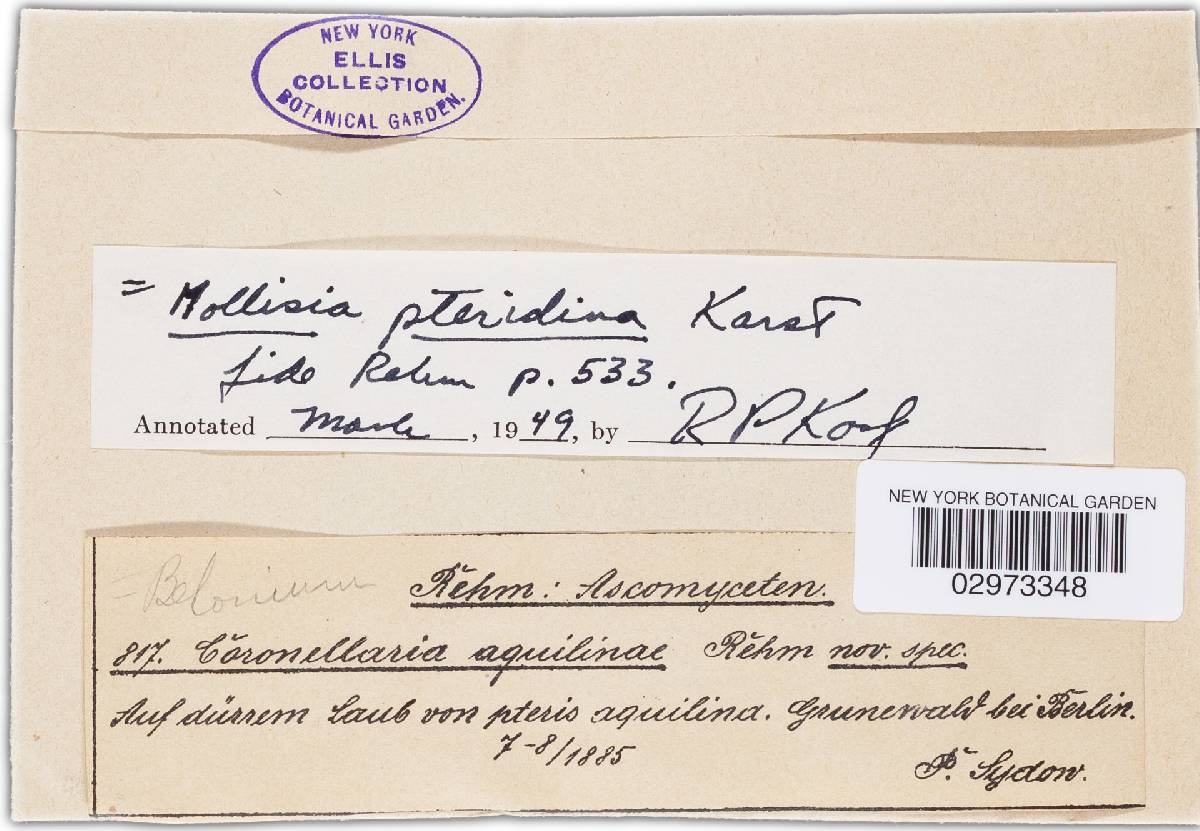 NEW YORK
ELLIS
COLLECTION
BOTANICAL GARDEN.
= Mollisia pteridina Karst
fide Rehm p. 533.
Annotated March, 1949, by RP Korf
NEW YORK BOTANICAL GARDEN
02973348
= Belonium
Rehm: Ascomyceten.
817. Coronellaria aquilinae Rehm nov. spec.
Auf dürrem Laub von pteris aquilina. Grunewald bei Berlin.
7-8/1885
P. Sydow.